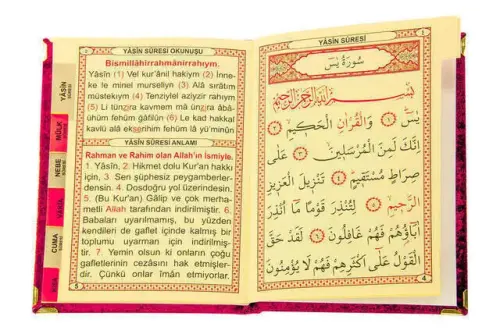 YÂSİN SÛRESİ OKUNUŞU
Bismillâhirrahmânirrahıym.
Yâsîn (1) Vel kur'ânil hakiym (2) İnne-
ke le minel murselîyn (3) Alâ sırâtım
müstekıym (4) Tenziylel azîyzir rahiym
(5) Li tünzira kavmem mâ ünzira âbâ-
ühüm fehüm gâfilûn (6) Le kad hakkal
kavlü alâ ekserihim fehüm lâ yü'minûn
YÂSİN SÛRESİ ANLAMI
Rahman ve Rahim olan Allah'ın İsmiyle.
1. Yâsîn, 2. Hikmet dolu Kur'an hakkı
için, 3. Sen şüphesiz peygamberler-
densin. 4. Dosdoğru yol üzerindesin.
5. (Bu Kur'an) Gâlip ve çok merha-
metli Allah tarafından indirilmiştir. 6.
Babaları uyarılmamış, bu yüzden
kendileri de gaflet içinde kalmış bir
toplumu uyarman için indirilmiş-
tir. 7. Yemin olsun ki onların çoğu
gafletlerinin cezâsını hak etmişler-
dir. Çünkü onlar îman etmiyorlar.
5
YÂSİN
SÛRESİ
MÜLK
NEBE
CUMA
YÂSİN SÛRESİ
سُورَةُ يٰسٓ
بِسْمِ اللّٰهِ الرَّحْمٰنِ الرَّحِيمِ
يٰسٓ ﴿١﴾ وَالْقُرْاٰنِ الْحَكِيمِ ﴿٢﴾
اِنَّكَ لَمِنَ الْمُرْسَلِينَ ﴿٣﴾ عَلٰى
صِرَاطٍ مُسْتَقِيمٍ ﴿٤﴾ تَنْزِيلَ الْعَزِيزِ
الرَّحِيمِ ﴿٥﴾ لِتُنْذِرَ قَوْمًا مَٓا اُنْذِرَ
اٰبَٓاؤُ۬هُمْ فَهُمْ غَافِلُونَ ﴿٦﴾ لَقَدْ حَقَّ
الْقَوْلُ عَلٰٓى اَكْثَرِهِمْ فَهُمْ لَا يُؤْمِنُونَ
4